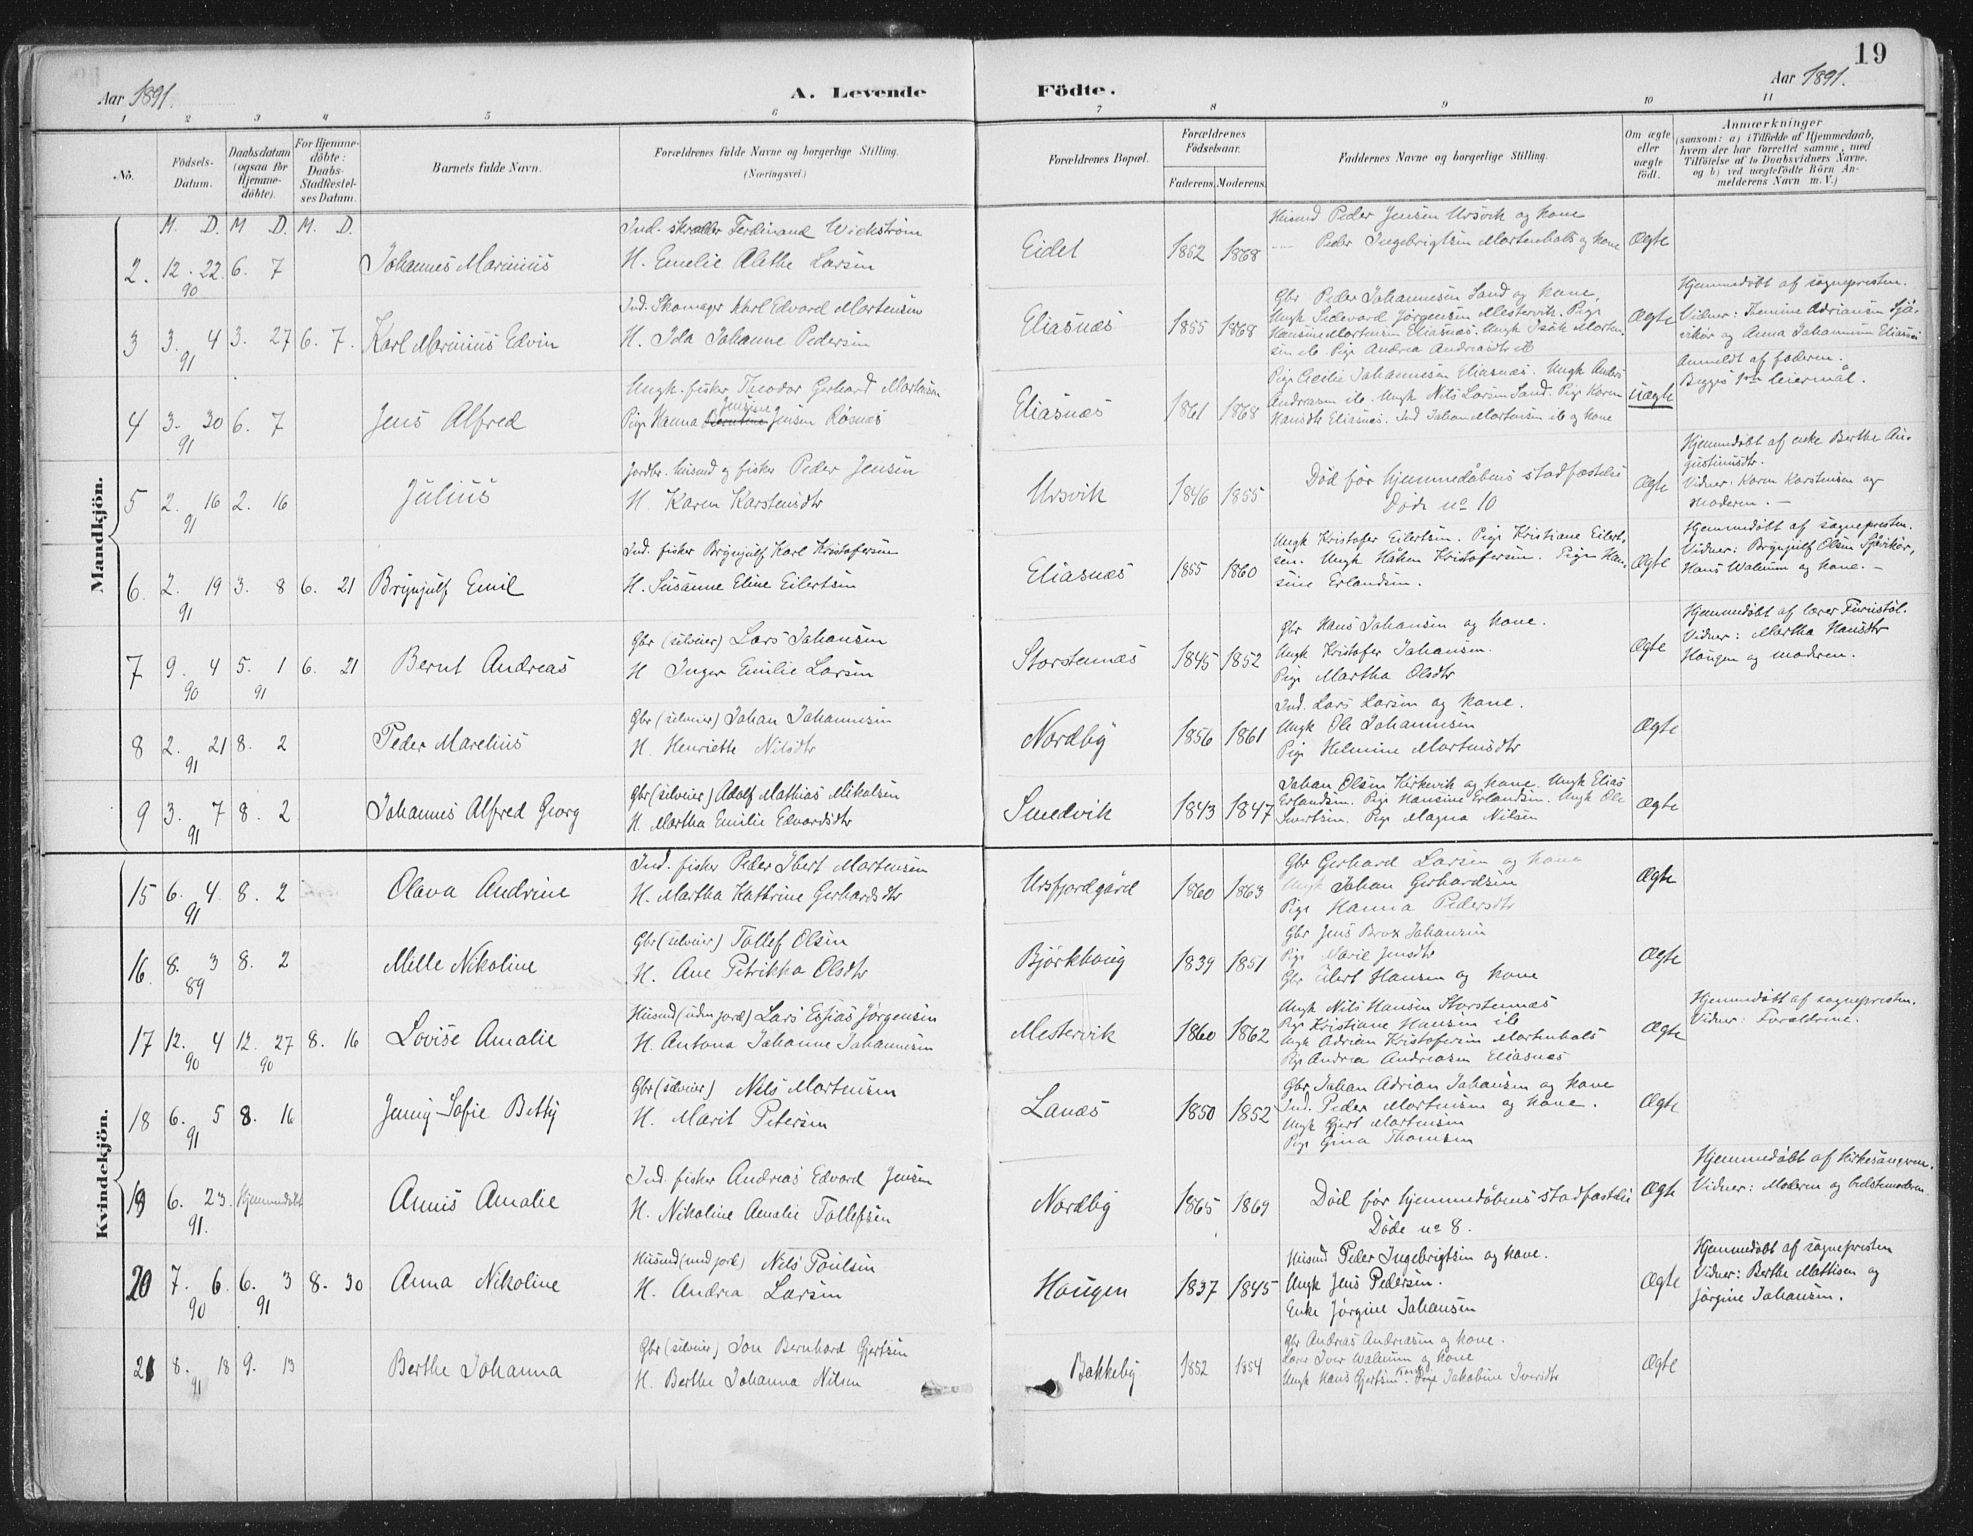 19
Aar 1891.
A. Levende Födte.
Aar 1891.
1 2 3 4 5 6 7 8 9 10 11
No.
Födsels-Datum.
Daabsdatum (ogsaa for Hjemmedöbte).
For Hjemmedöbte: Daabs-Stadfæstelses Datum.
Barnets fulde Navn.
Forældrenes fulde Navne og borgerlige Stilling.
(Næringsvei.)
Forældrenes Bopæl.
Forældrenes Födselsaar.
Faderens. Moderens.
Faddernes Navne og borgerlige Stilling.
Om ægte eller uægte födt.
Anmærkninger
(saasom: a) i Tilfælde af Hjemmedaab,
hvem der har forrettet samme, med
Tilföielse af to Daabsvidners Navne.
og b) ved uægtefödte Börn An-
melderens Navn m. V.)
M. D. M D. M. D.
Mandkjön.
2. 12. 22 90 6. 7 Johannes Marinius
Ind. skrædder Ferdinand Wichström
H. Emelie Alethe Larsen
Eidet 1862 1868
Husmd Peder Jensen Ursvik og kone
— Peder Ingebrigtsen Mortenhals og kone
Ægte
3 3. 4 91 3. 27 6. 7. Karl Marinius Edvin
Ind. Skomager Karl Edvard Mortensen
H. Ida Johanne Pedersen
Eliasnæs 1855 1868
Gbr Peder Johannesen Sand og kone.
Ungk Sedevard Jørgensen Mestervik. Pige
Hansine Mortensen Eliasnæs. Ungk Isak Morten-
sen ib Pige Andrea Andreasdtr ib
Ægte
Hjemmedøbt af sognepresten.
Vidner: Themine Adriansen Sjå-
vikør og Anna Johannesen Eliasnæs
4 3. 30 91 6. 7 Jens Alfred
Ungk. fisker Theodor Gerhard Mortensen
Jensine
Pige Hanna Jensen Røsnæs
Eliasnæs 1861 1868
Pige Cecilie Johannesen Eliasnæs. Ungk Anders
Andreasen ib. Ungk Nils Larsen Sand. Pige Karen
Hansdtr Eliasnæs. Ind Johan Mortensen ib og kone
uægte
Anmeldt af faderen.
Begges 1ste leiermål.
5 2. 16 91 2. 16 Julius
Jordbr. husmd og fisker Peder Jensen
H. Karen Karstensdtr
Ursvik 1846 1855
Død før hjemmedåbens stadfæstelse
Døde no 10
Ægte
Hjemmedøbt af enke Berthe Au-
gustinusdtr.
Vidner: Karen Karstensen og
moderen. —
6. 2. 19 91 3. 8 6. 21 Brynjulf Emil
Ind. fisker Brynjulf Karl Kristofersen
H. Susanne Eline Eilertsen
Eliasnæs 1855 1860
Ungk Kristofer Eilertsen. Pige Kristiane Eilert-
sen. Ungk Håken Kristofersen. Pigen Han-
sine Erlandsen.
Ægte
Hjemmedøbt af sognepresten.
Vidner: Brynjulf Olsen Sjåvikør,
Hans Walnum og kone. —
7 9. 4 90 5. 1 91 6. 21 Bernt Andreas
Gbr (selveier) Lars Johansen
H Inger Emilie Larsen
Storstennæs 1845 1852
Gbr Hans Johansen og kone.
Ungk Kristofer Johansen.
Pige Martha Olsdtr
Ægte
Hjemmedøbt af lærer Furustøl.
Vidner: Martha Hansdtr
Hougen og moderen.
8 2. 21 91 8. 2 Peder Marelius
Gbr (selveier) Johan Johannesen
H. Henriette Nilsdtr
Nordby 1856 1861
Ind. Lars Larsen og kone.
Ungk Ole Johannesen
Pige Helmine Mortensdtr
Ægte
9 3. 7 91 8. 2 Johannes Alfred Georg
Gbr (selveier) Adolf Mathias Mikalsen
H. Martha Emilie Edvardsdtr
Smedvik 1843 1847
Johan Olsen Kirkevik og kone. Ungk Elias
Erlandsen. Pige Hansine Erlandsen. Ungk Ole
Sivertsen. Pige Magna Nilsen
Ægte
Kvindekjön.
15 6. 4 91 8. 2 Olava Andrine
Ind. fisker Peder Ibert Mortensen
H. Martha Kathrine Gerhardsdtr
Ursfjordgård 1860 1863
Gbr Gerhard Larsen og kone
Ungk Johan Gerhardsen
Pige Hanna Pedersdtr
Ægte
16 8. 3 89 8. 2 Mille Nikoline
Gbr (selveier) Tollef Olsen
H. Ane Petrikka Olsdtr
Bjørkhoug 1839 1851
Gbr Jens Brox Johansen
Pige Marie Jensdtr
Gbr Eilert Hansen og kone
Ægte
17 12. 4 90 12. 27 90 8. 16 Lovise Amalie
Husmd (uden jord) Lars Esjias Jørgensen
H. Antona Johanne Johannesen
Mestervik 1860 1862
Ungk Nils Hansen Storstennæs
Pige Kristiane Hansen ib
Ungk Adrian Kristofersen Mortenhals
Pige Andrea Andreasen Eliasnæs
Ægte
Hjemmedøbt af sognepresten.
Vidner: Forældrene.
18 6. 5 91 8. 16 Jenny Sofie Betty
Gbr (selveier) Nils Mortensen
H. Marit Petersen
Lanæs 1850 1852
Gbr Johan Adrian Johansen og kone
Ind. Peder Mortensen og kone.
Ungk Gjert Mortensen
Pige Gina Thomsen
Ægte
19 6. 23. 91. Hjemmedøbt Annis Amalie
Ind. fisker Andreas Edvard Jensen
H. Nikoline Amalie Tollefsen
Nordby 1865 1869
Død før hjemmedåbens stadfæstelse
Døde no 8.
Ægte
Hjemmedøbt af kirkesangeren.
Vidner: Moderen og bedstemoderen
20 7. 6. 90 6. 3 91 8. 30 Anna Nikoline
Husmd (med jord) Nils Poulsen
H. Andrea Larsen
Hougen 1837 1845
Husmd Peder Ingebrigtsen og kone.
Ungk Jens Pedersen.
Enke Jørgine Johansen
Ægte
Hjemmedøbt af sognepresten
Vidner: Berthe Mattisen og
Jørgine Johansen.
21 8. 18 91 9. 13 Berthe Johanna
Gbr (selveier) Jon Bernhard Gjertsen
H. Berthe Johanna Nilsen
Bakkeby 1852 1854
Gbr Andreas Andreasen og kone.
Lærer Iver Walnum og kone
Ungk Hans Gjertsen. Pige Jakobine Iversdtr
Ægte